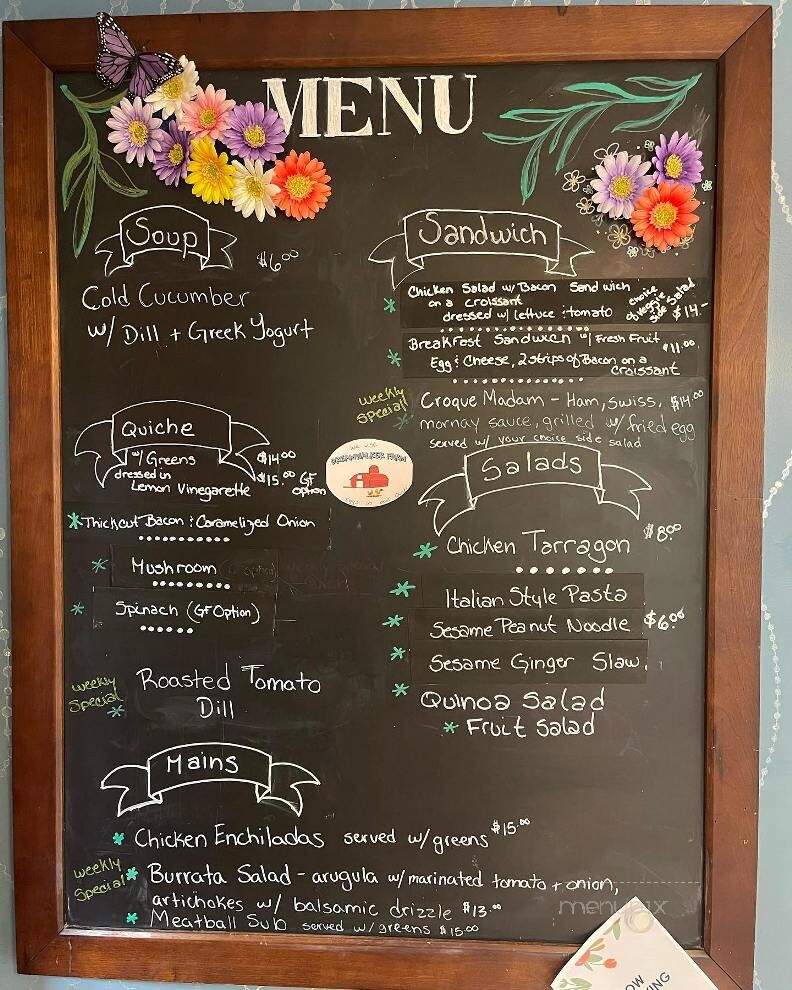 MENU
Soup
$6.00
Cold Cucumber
w/ Dill + Greek Yogurt
Quiche
w/Greens $14.00
dressed in $15.00 GF
Lemon Vinegarette option
*Thickcut Bacon & Caramelized Onion
* Mushroom
* Spinach (GF Option)
weekly special
* Roasted Tomato
Dill
Sandwich
* Chicken Salad w/ Bacon Sandwich
on a croissant
dressed w/ lettuce & tomato
choice of veggie or side Salad $14.-
* Breakfast Sandwich w/ Fresh Fruit $11.00
Egg & Cheese, 2 strips of Bacon on a
Croissant
weekly special!
* Croque Madam - Ham, Swiss, $14.00
mornay sauce, grilled w/ fried egg
served w/ your choice side salad
DREAMWALKER FARM
Salads
* Chicken Tarragon $8.00
* Italian Style Pasta
* Sesame Peanut Noodle $6.00
* Sesame Ginger Slaw
* Quinoa Salad
* Fruit Salad
Mains
* Chicken Enchiladas served w/greens $15.00
weekly special!
* Burrata Salad - arugula w/marinated tomato + onion,
artichokes w/ balsamic drizzle $13.00
* Meatball Sub served w/greens $15.00
menupix